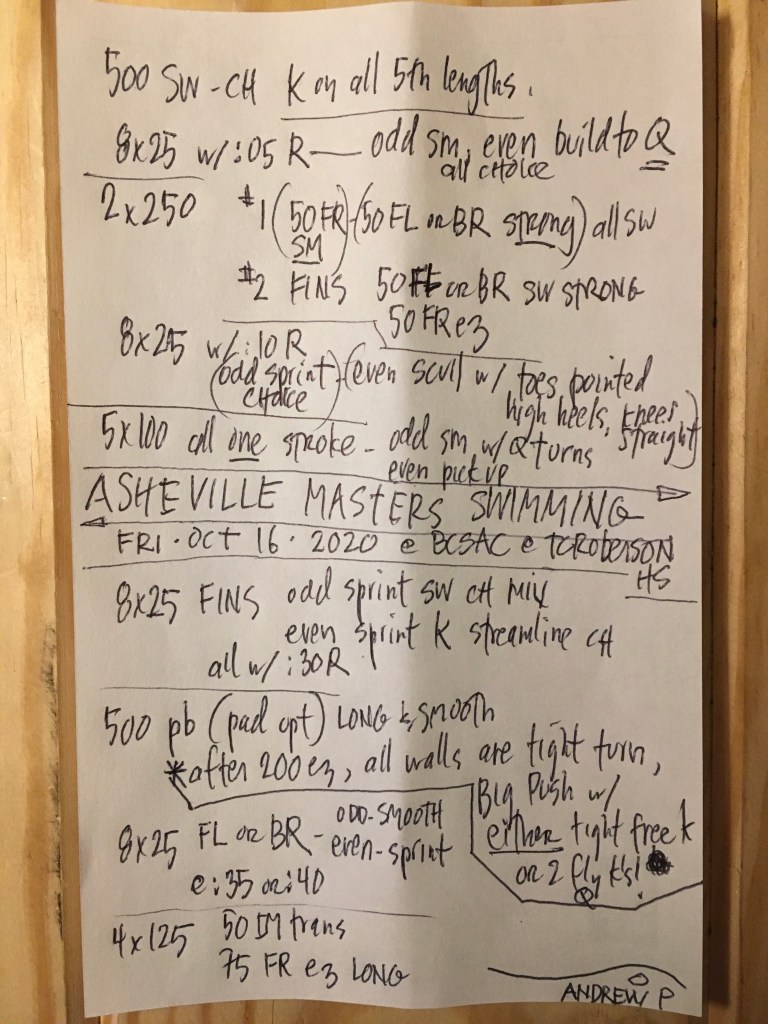 500 SW-CH K on all 5th lengths.
8x25 w/:05 R — odd sm, even build to Q
all CHOICE
2x250 #1 (50 FR SM)-(50 FL or BR strong) all SW
#2 FINS 50 FL or BR SW STRONG
50 FR ez
8x25 w/:10 R
(odd sprint CHOICE)-(even scull w/ toes pointed
high heels, knees straight)
5x100 all one stroke - odd sm w/ Q turns
even pick up
ASHEVILLE MASTERS SWIMMING
FRI. OCT 16. 2020 @ BCSAC @ TCRoberson
HS
8x25 FINS odd sprint SW CH MIX
even sprint K streamline CH
all w/:30R
500 pb (pad opt) LONG & SMOOTH
*after 200 ez, all walls are tight turn,
Big Push w/
either tight free k
or 2 fly k's!
8x25 FL or BR - ODD-SMOOTH
even-sprint
@:35 or :40
4x125 50 IM trans
75 FR ez LONG
ANDREW P